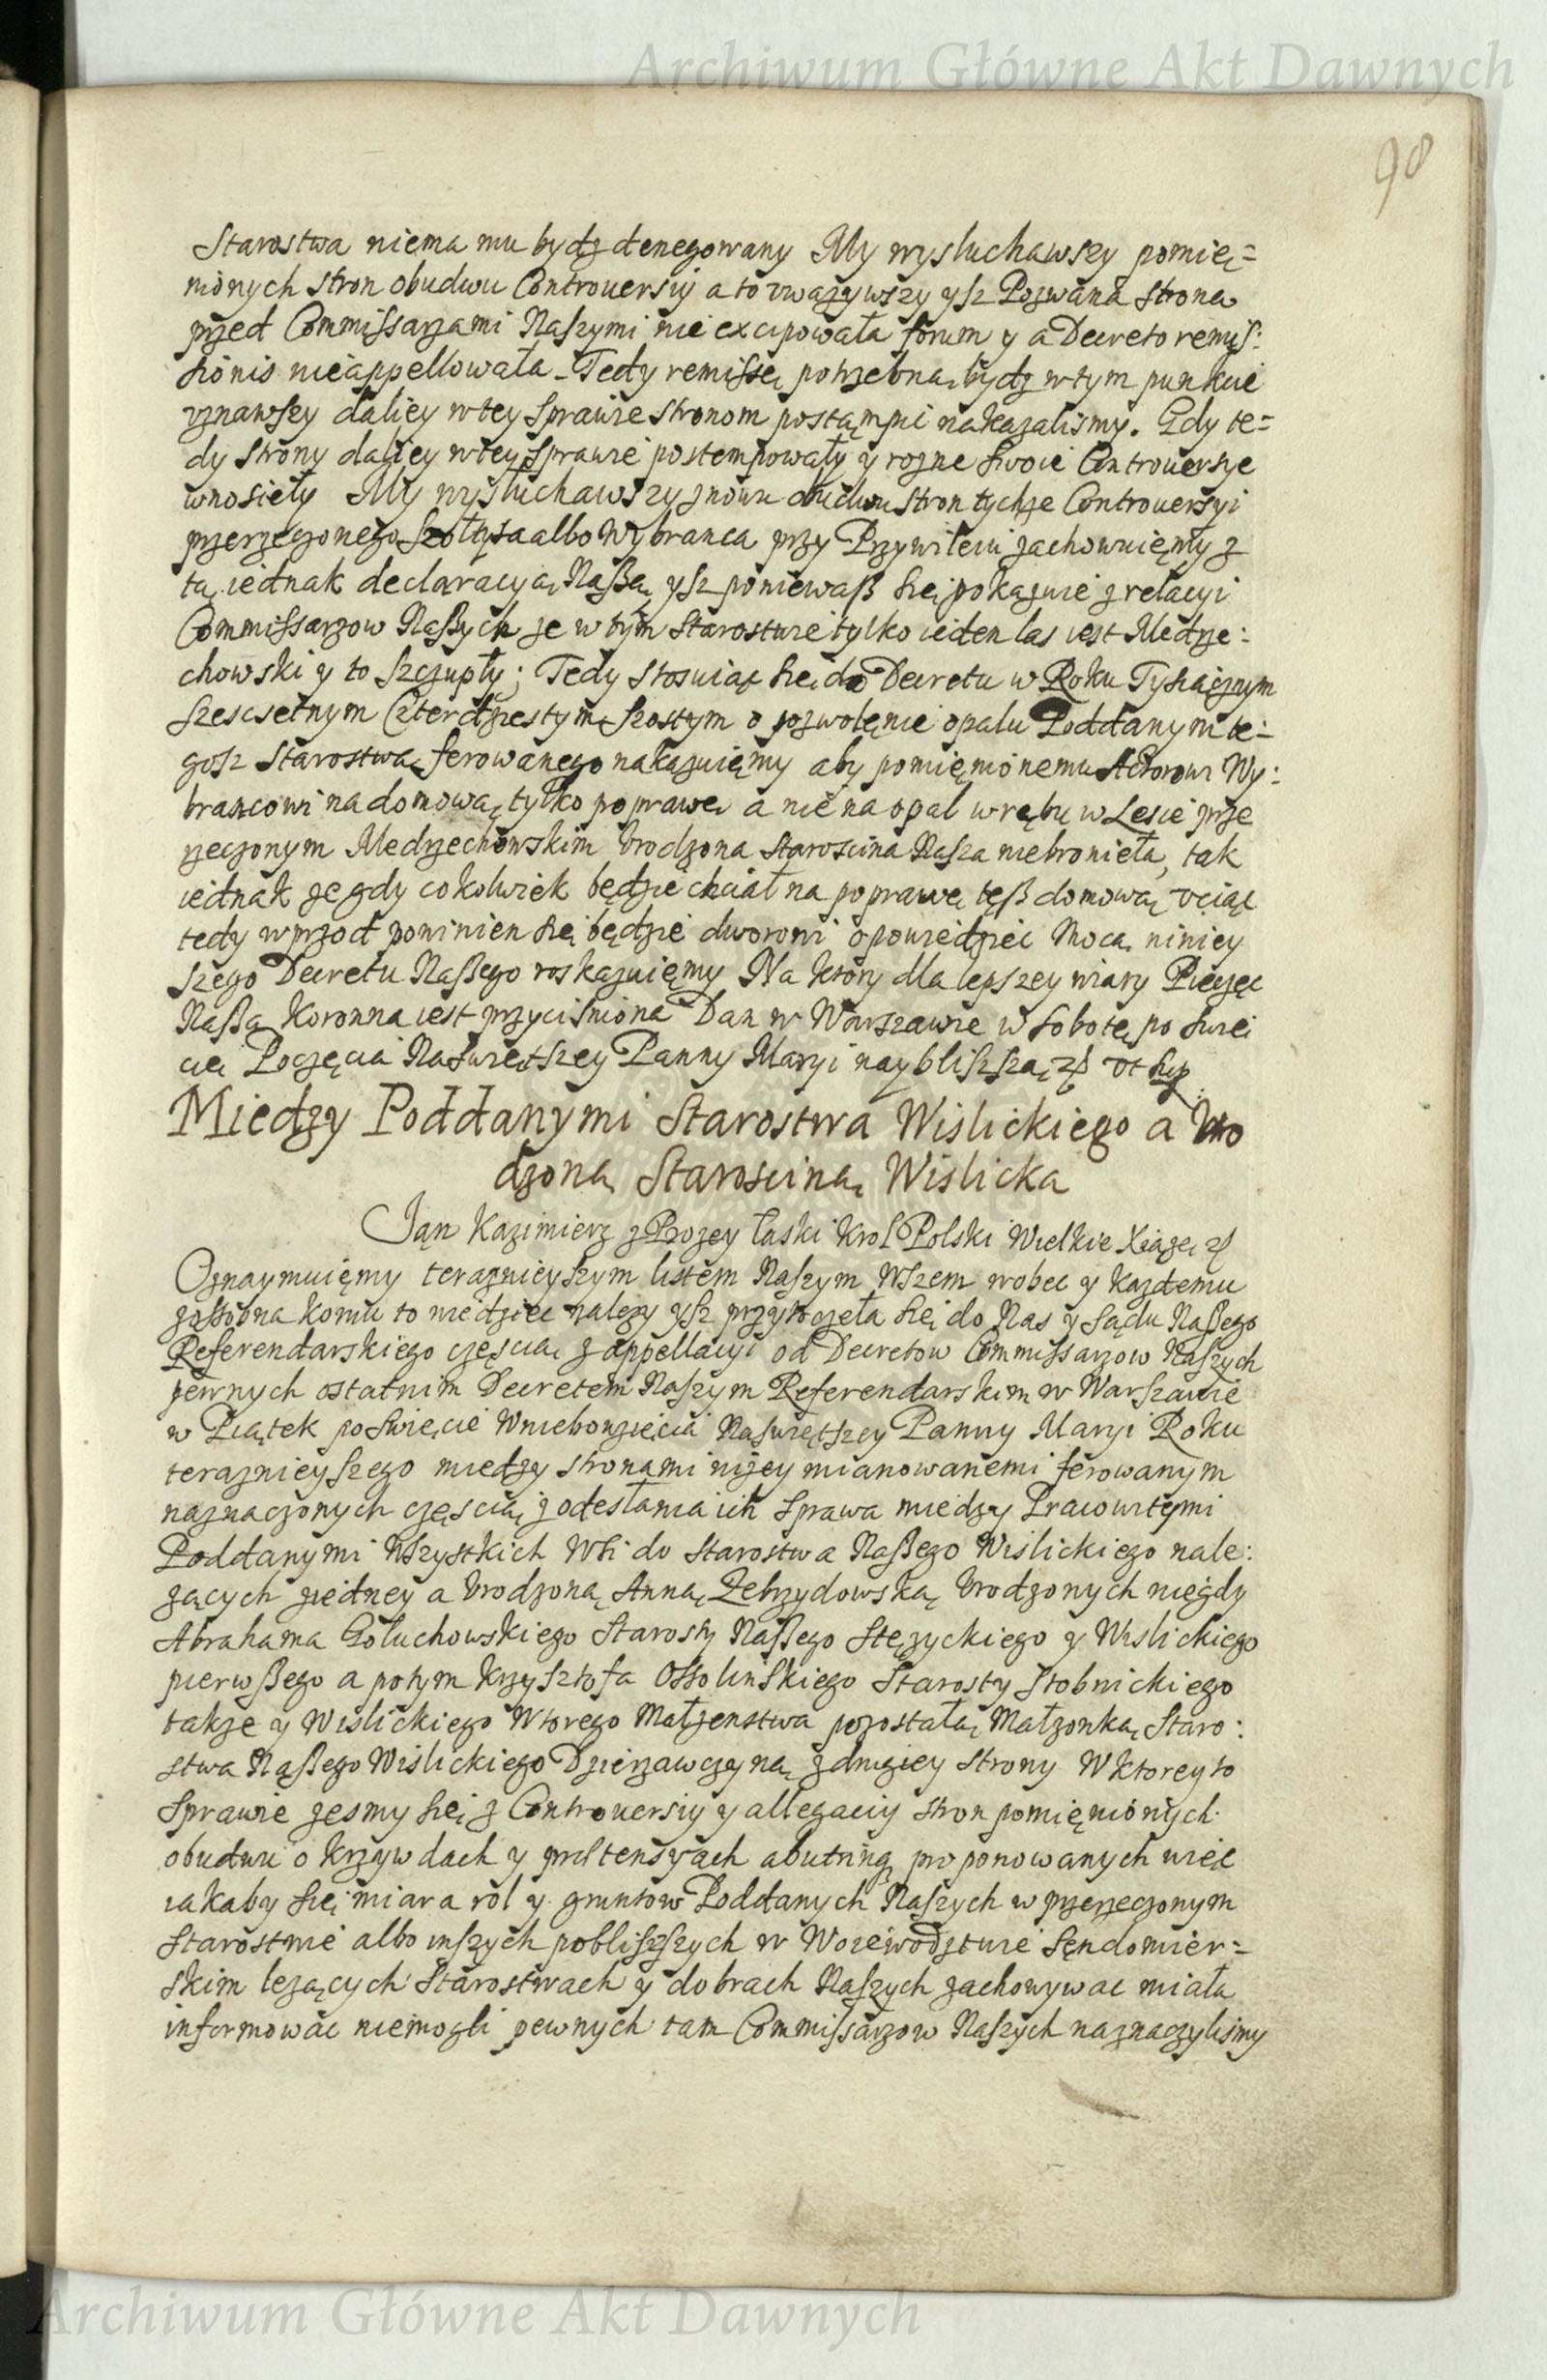 Archiwum Główne Akt Dawnych
98
Starostwa niema mu bydz denegowany My wysłuchawszy pomię=
nionych stron obudwu Controuersiy a to vważywszy ysz Pozwana strona
przed Commissarzami Naszymi nie excypowała forum y a Decreto remis:
sionis nieappellowała. Tedy remissę potrzebną bydz w tym punkcie
vznawszy daliey w tey sprawie stronom postąmpic nakazalismy. Gdy te=
dy strony daliey w tey sprawie postempowały y rozne swoie Controuersye
wnosieły My wysłuchawszy znowu obudwu stron tychze Controuersyi
przerzeczonego Szołtysa albo Wybranca przy Przywileiu zachowuięmy z
tą iednak declaracyą Naszą ysz poniewasz się pokazuie z relacyi
Commissarzow Naszych ze w tym Starostwie tylko ieden las iest Medrze:
chowski y to szczupły; Tedy stosuiąc się do Decretu w Roku Tysiącznym
szescsetnym Czterdziestym szostym o pozwolęnie opału Poddanym te:
gosz Starostwa ferowanego nakazuięmy aby pomięnionemu Actorowi Wy:
brancowi na domową tylko poprawę a nie na opał wrębu w Lesie prze
rzeczonym Medrzechowskim Vrodzona Staroscina Nasza niebronieła, tak
iednak ze gdy cokolwiek będzie chciał na poprawę tęsz domową vciąc
tedy wprzod powinien się będzie dworowi opowiedziec Mocą niniey
szego Decretu Naszego roskazuięmy Na ktory dla lepszey wiary Pieczęc
Nasza Koronna iest przycisniona Dan w Warszawie w Sobotę po swię
cie Poczęcia Naswiętszey Panny Maryi nayblisszą etc vt sup
Miedzy Poddanymi Starostwa Wislickiego a Vro
dzoną Starosciną Wislicka
Jąn Kazimierz z Bozey łaski Krol Polski Wielkie Xiążę etc
Oznaymuięmy terazniejszym listem Naszym Wszem wobec y kazdemu
zossobna komu to wiedziec nalezy ysz przytoczeła się do Nas y Sądu Naszego
Referendarskiego częscią z appellacyi od Decretow Commissarzow Naszych
pewnych ostatnim Decretem Naszym Referendarskim w Warszawie
w Piątek po Swięcie Wniebowzięcia Naswiętszey Panny Maryi Roku
teraznieyszego miedzy stronami nizey mianowanemi ferowanym
naznaczonych częscią z odesłania ich Sprawa miedzy Pracowitymi
Poddanymi Wszystkich Wsi do Starostwa Naszego Wislickiego nale:
zących z iedney a Vrodzoną Anną Zebrzydowską Vrodzonych niegdy
Abrahama Gołuchowskiego Starosty Naszego Stęzyckiego y Wislickiego
pierwszego a potym Krzysztofa Ossolinskiego Starosty Stobnickiego
takze y Wislickiego Wtorego Małzenstwa pozostałą Małzonką Staro:
stwa Naszego Wislickiego Dzierzawczyną z drugiey strony W ktorey to
Sprawie zesmy się z Controuersiy y allegaciy stron pomięnionych
obudwu o krzywdach y prætensyach abutrinq proponowanych więc
iakaby się miara rol y gruntow Poddanych Naszych w przerzeczonym
Starostwie albo inszych pobliszszych w Woiewodztwie Sęndomier=
skim lezących Starostwach y dobrach Naszych zachowywac miała
informowac niemogli pewnych tam Commissarzow Naszych naznaczylismy
Archiwum Główne Akt Dawnych